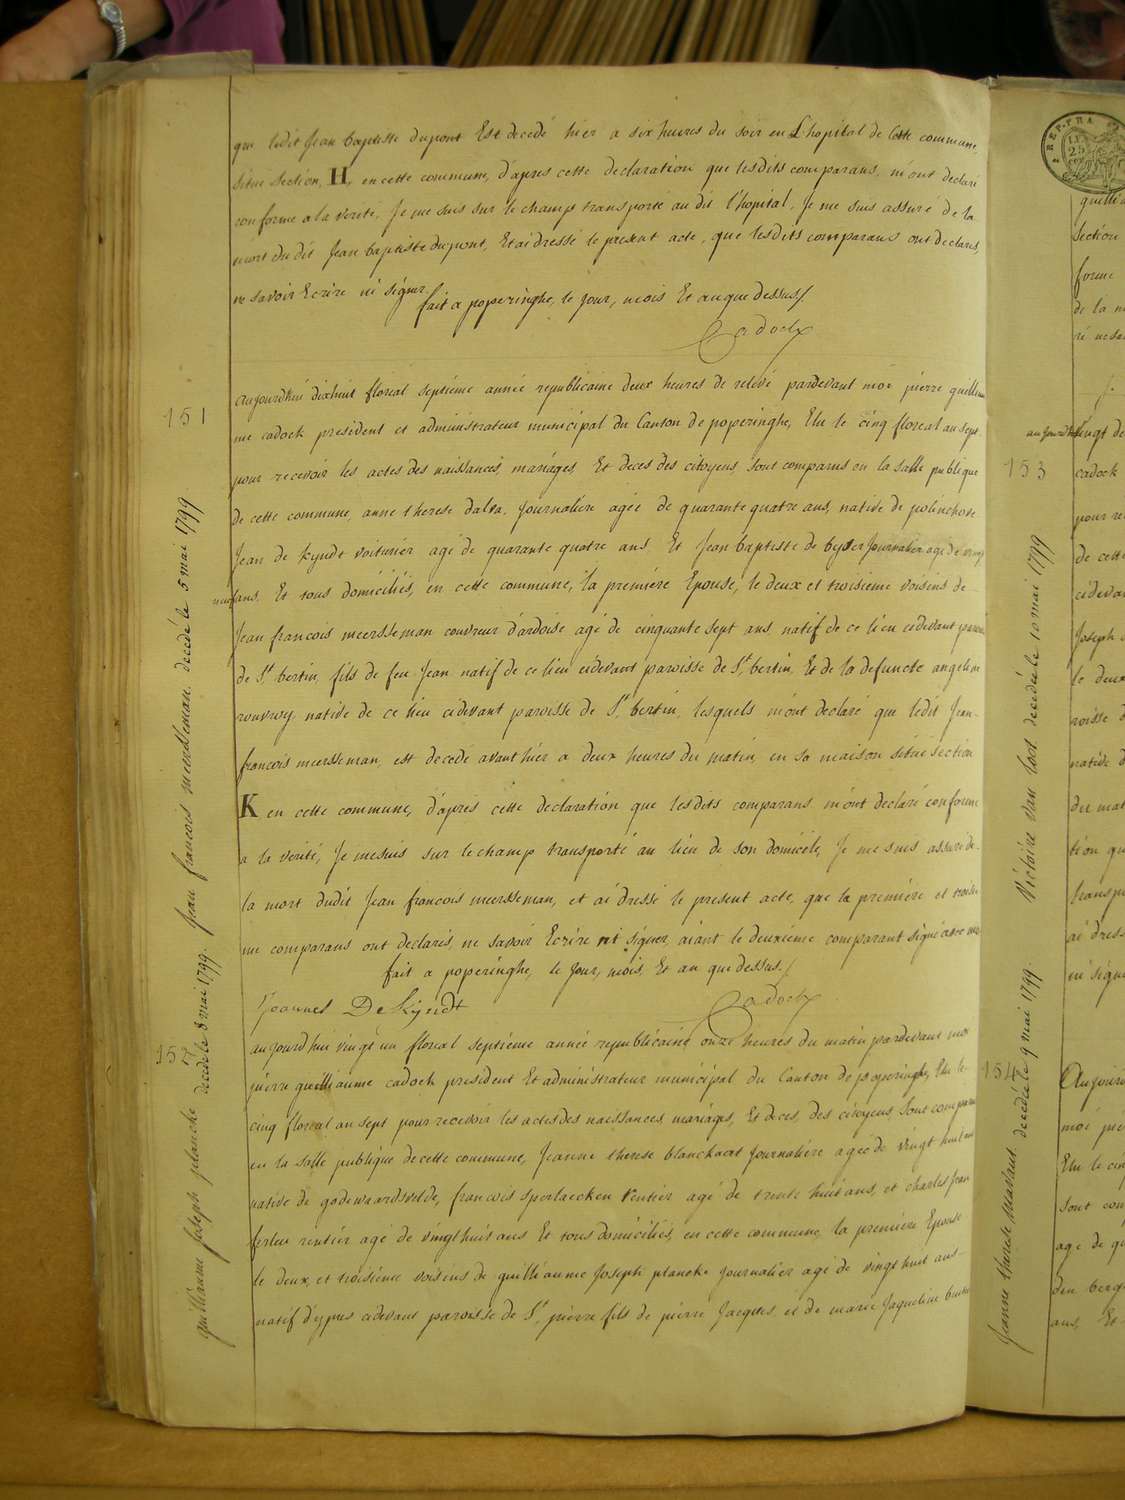 que ledit Jean baptiste dupont Est decedé hier a six heures du soir en L'hopital de Cette commune,
Situé Section, H, en cette commune, d'apres cette declaration que lesdits comparans, m'ont declaré
conforme a la verité, Je me suis sur le champ transporté au dit l'hopital, Je me suis assuré de la
mort du dit Jean baptiste dupont, Et ai dressé le present acte, que lesdits comparans ont declarés,
ne savoir Ecrire ni signer.
fait a poperinghe, le jour, mois Et an que dessus /
Cadock
151
aujourdhui dixhuit floreal septiéme année republicaine deux heures de relevé pardevant moi pierre guilliau
me cadock president et administrateur municipal du Canton de poperinghe, Elu le cinq floreal an sept
pour recevoir les actes des naissances, mariages Et deces des citoyens, sont comparus en la salle publique
de cette commune, anne therese dalva, Journaliére agée de quarante quatre ans, native de polinchove
Jean de Kyndt voiturier agé de quarante quatre ans Et Jean baptiste de byser Journalier agé de vingt
neuf ans. Et tous domiciliés, en cette commune, la premiére Epouse, le deux et troisieme voisins de
Jean francois meersseman couvreur d'ardoise agé de cinquante sept ans natif de ce lieu cidevant paroisse
de St bertin, fils de feu Jean natif de ce lieu cidevant paroisse de St bertin, Et de la defuncte angeline
rouvroy native de ce lieu cidevant paroisse de St bertin, lesquels m'ont declaré que ledit Jean
francois meersseman, est decedé avant hier a deux heures du matin, en sa maison située section
K en cette commune, d'aprés cette declaration que lesdits comparans m'ont declaré conforme
a la verité, Je me suis sur le champ transporté au lieu de son domicile, Je me suis assuré de
la mort dudit Jean francois meersseman, et ai dressé le present acte, que la premiére et troisie
me comparans ont declarés, ne savoir Ecrire ni signer, aiant le deuxiéme comparant signé avec moi
fait a poperinghe, le Jour, mois, Et an que dessus. /
Joannes De Kyndt Cadock
152
aujourdhui vingt un floreal septiéme année republicaine onze heures du matin pardevant moi
pierre guilliaume cadock president Et administrateur municipal du Canton de poperinghe, Elu le
cinq floreal an sept pour recevoir les actes des naissances, mariages, Et deces, des citoyens Sont comparus
en la salle publique de cette commune, Jeanne therese blanckaert Journaliére agée de vingt huit ans
native de godewaardsvelde, francois sperlaecken rentier agé de trente huit ans, et charles Jean
ferleu rentier agé de vingt huit ans Et tous domiciliés, en cette commune la premiére Epouse
le deux, et troisiéme voisins de guilliaume Joseph plancke Journalier agé de vingt huit ans
natif d'ypres cidevant paroisse de St pierre, fils de pierre Jacques et de marie Jaqueline
Jean francois meersseman. decedé le 5 mai 1799
guilliaume Joseph plancke decedé le 8 mai 1799.
REP. FRA
25
Section
forme
de la
aujourdhui
vingt
153
cadock
de cette
cidevant
Joseph
le deux
roisse
native
du mat
tion
ai dres
ni signer
Victoire Van loo decedée le 10 mai 1799
154
Aujour
moi pie
Elu le cin
sont com
agé de
ans, Et
Jeanne therese decedée le 9 mai 1799.